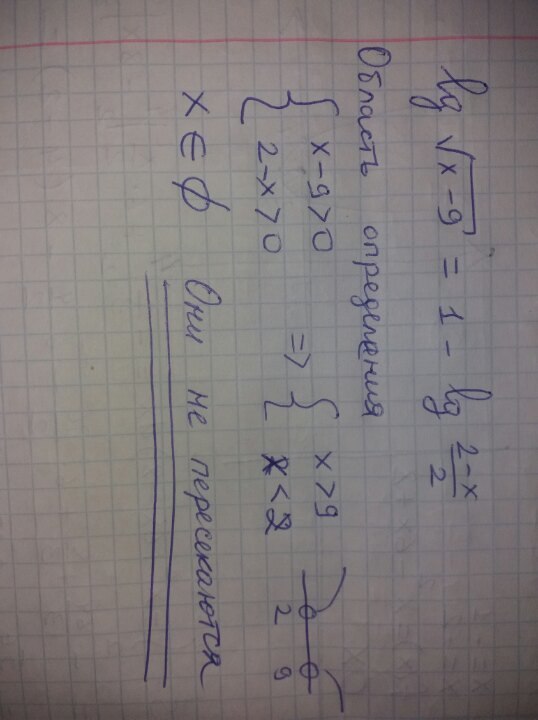 lg √(x-9) = 1 - lg (2-x)/2
Область определения
{ x-9>0 => { x>9
{ 2-x>0 { x<2
2 9
x ∈ ∅ Они не пересекаются